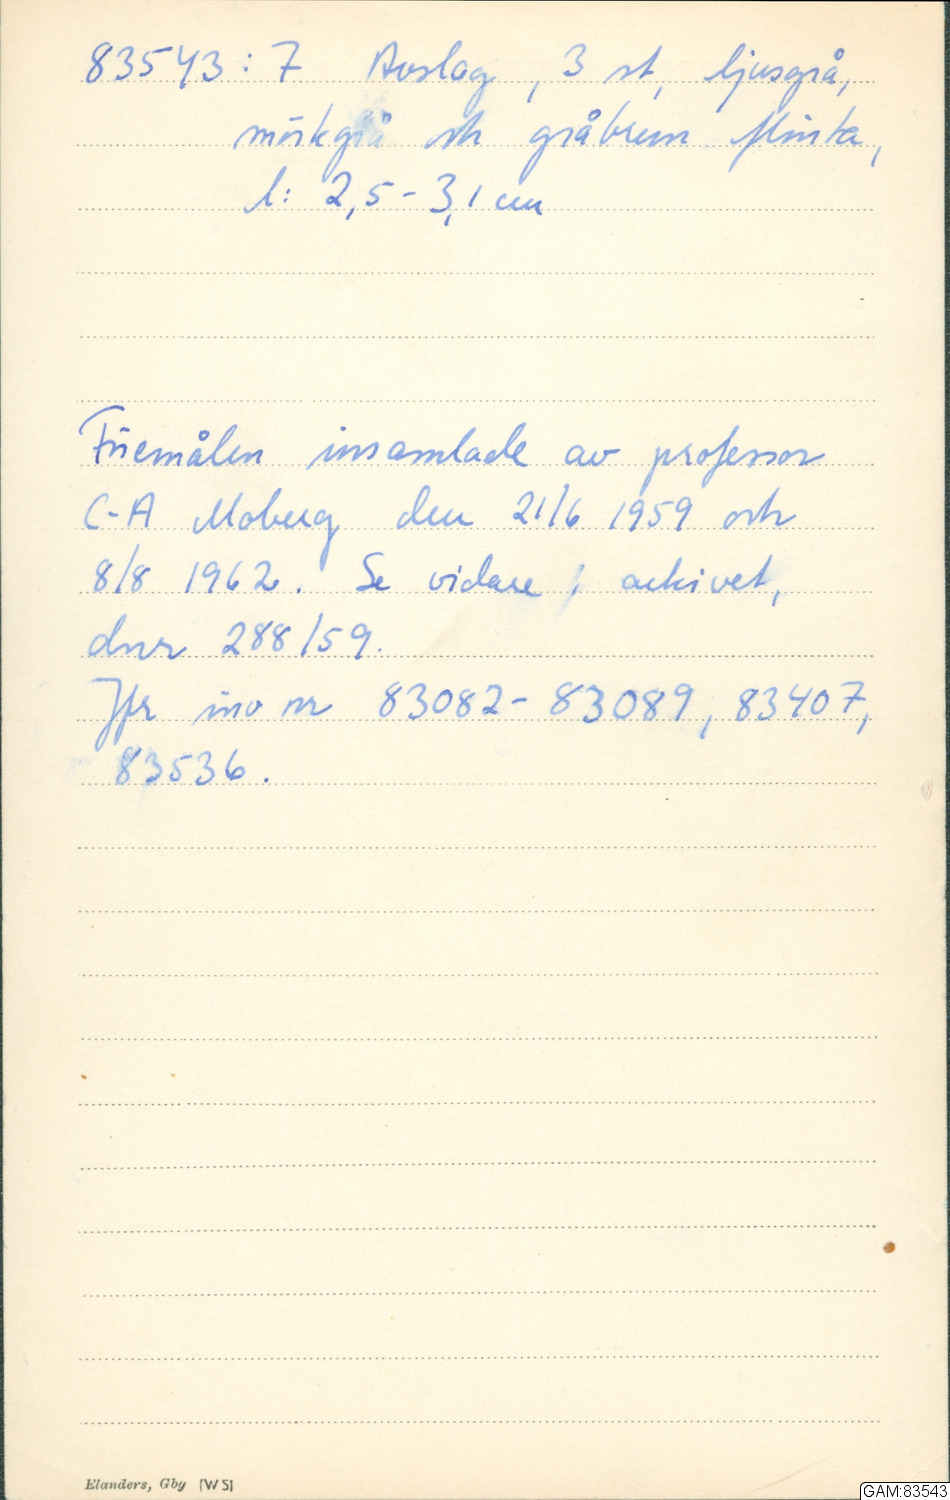 83543:7 Avslag, 3 st, ljusgrå,
mörkgrå och gråbrun flinta,
l: 2,5-3,1 cm
Föremålen insamlade av professor
C-A Moberg den 21/6 1959 och
8/8 1962. Se vidare i arkivet,
dnr 288/59.
Jfr inv nr 83082-83089, 83407,
83536.
Elanders, Gby (WS)
GAM:83543